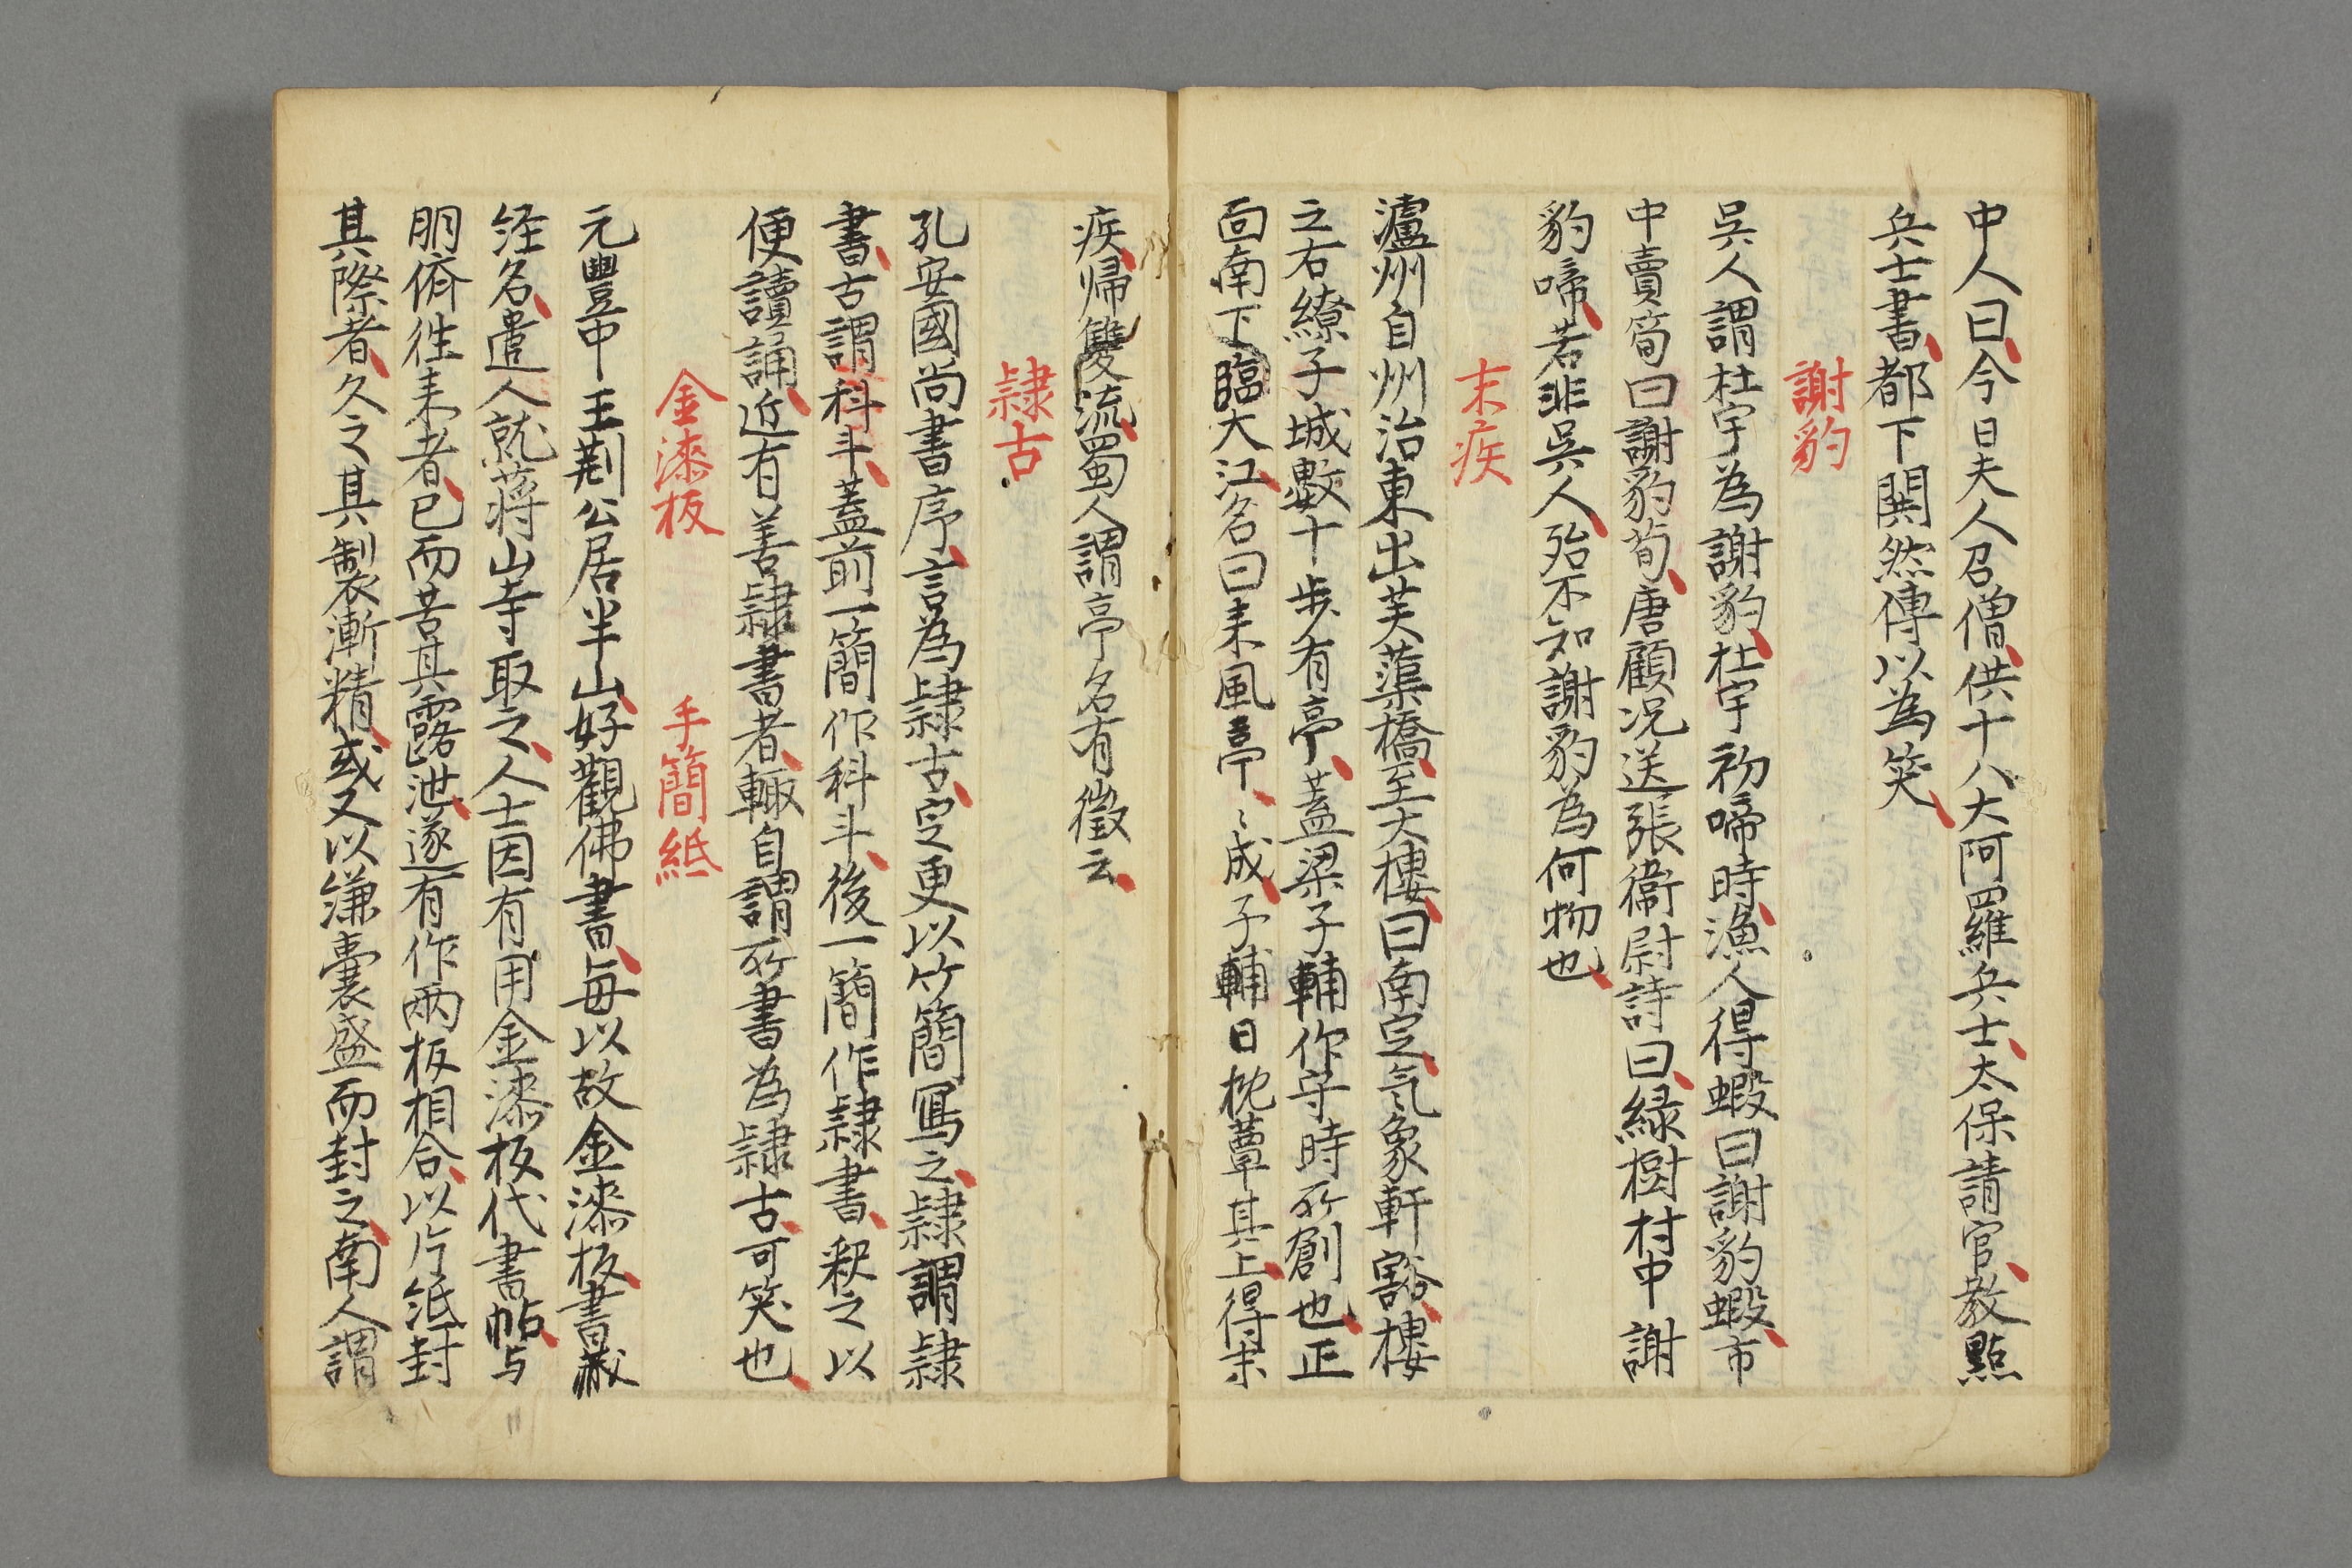 中人曰今日夫人召僧供十八大阿羅兵士太保請官教點
兵士書都下閧然傳以為笑
謝豹
吳人謂杜宇為謝豹杜宇初啼時漁人得蝦曰謝豹蝦市
中賣筍曰謝豹荀唐顧况送張衞尉詩曰緑樹村中謝
豹啼若非吳人殆不知謝豹為何物也
末疾
瀘州自州治東出芙蕖橋至大樓曰南定气象軒豁樓
之右繚子城數十歩有亭蓋梁子輔作守時所創也正
面南下臨大江名曰来風亭〻成子輔日枕蕈其上得末
疾帰雙流蜀人謂亭名有徵云
隷古
孔安國尚書序言為隷古定更以竹簡寫之隷謂隷
書古謂科斗蓋前一簡作科斗後一簡作隷書釈之以
便讀誦近有善隷書者輙自謂所書為隷古可笑也
金漆板　手簡紙
元豐中王荆公居半山好觀佛書每以故金漆板書蔵
经名遣人就蒋山寺取之人士因有用金漆板代書帖与
朋儕徃来者已而苦其露泄遂有作两板相合以片紙封
其際者久之其製漸精或又以縑囊盛而封之南人謂